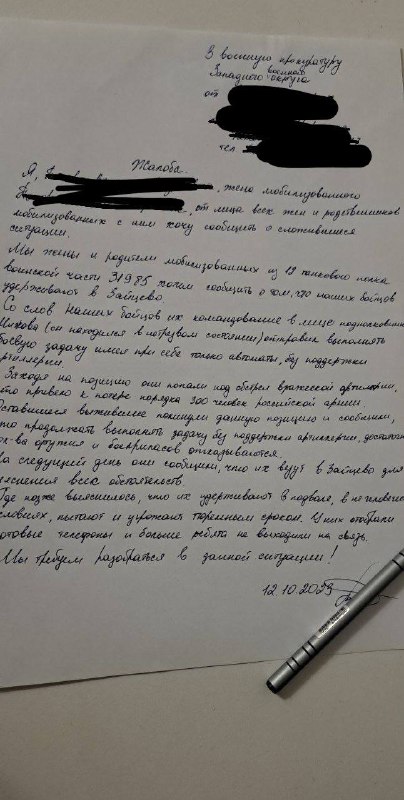 В военную прокуратуру
Западного военного округа
от
тел
Жалоба.
Я, , жена мобилизованного
, от лица всех жен и родственников
мобилизованных с ним хочу сообщить о сложившейся
ситуации.
Мы жены и родители мобилизованных из 12 танкового полка
воинской части 31985 хотим сообщить о том, что наших бойцов
удерживают в Зайцево.
Со слов наших бойцов их командование в лице подполковника
(он находился в нетрезвом состоянии) отправил выполнять
боевую задачу имея при себе только автоматы, без поддержки
артиллерии.
Заходя на позицию они попали под обстрел вражеской артиллерии,
что привело к потере порядка 300 человек российской армии
Оставшиеся выжившие покинули данную позицию и сообщили,
что продолжать выполнять задачу без поддержки артиллерии, достаточн
к-ва оружия и боеприпасов отказываются.
На следующий день они сообщили, что их везут в Зайцево для
выяснения всех обстоятельств.
Где позже выяснилось, что их удерживают в подвале, в не человеч
условиях, пытают и угрожают тюремным сроком. У них отобрали
сотовые телефоны и больше ребята не выходили на связь.
Мы требуем разобраться в данной ситуации!
12.10.2023